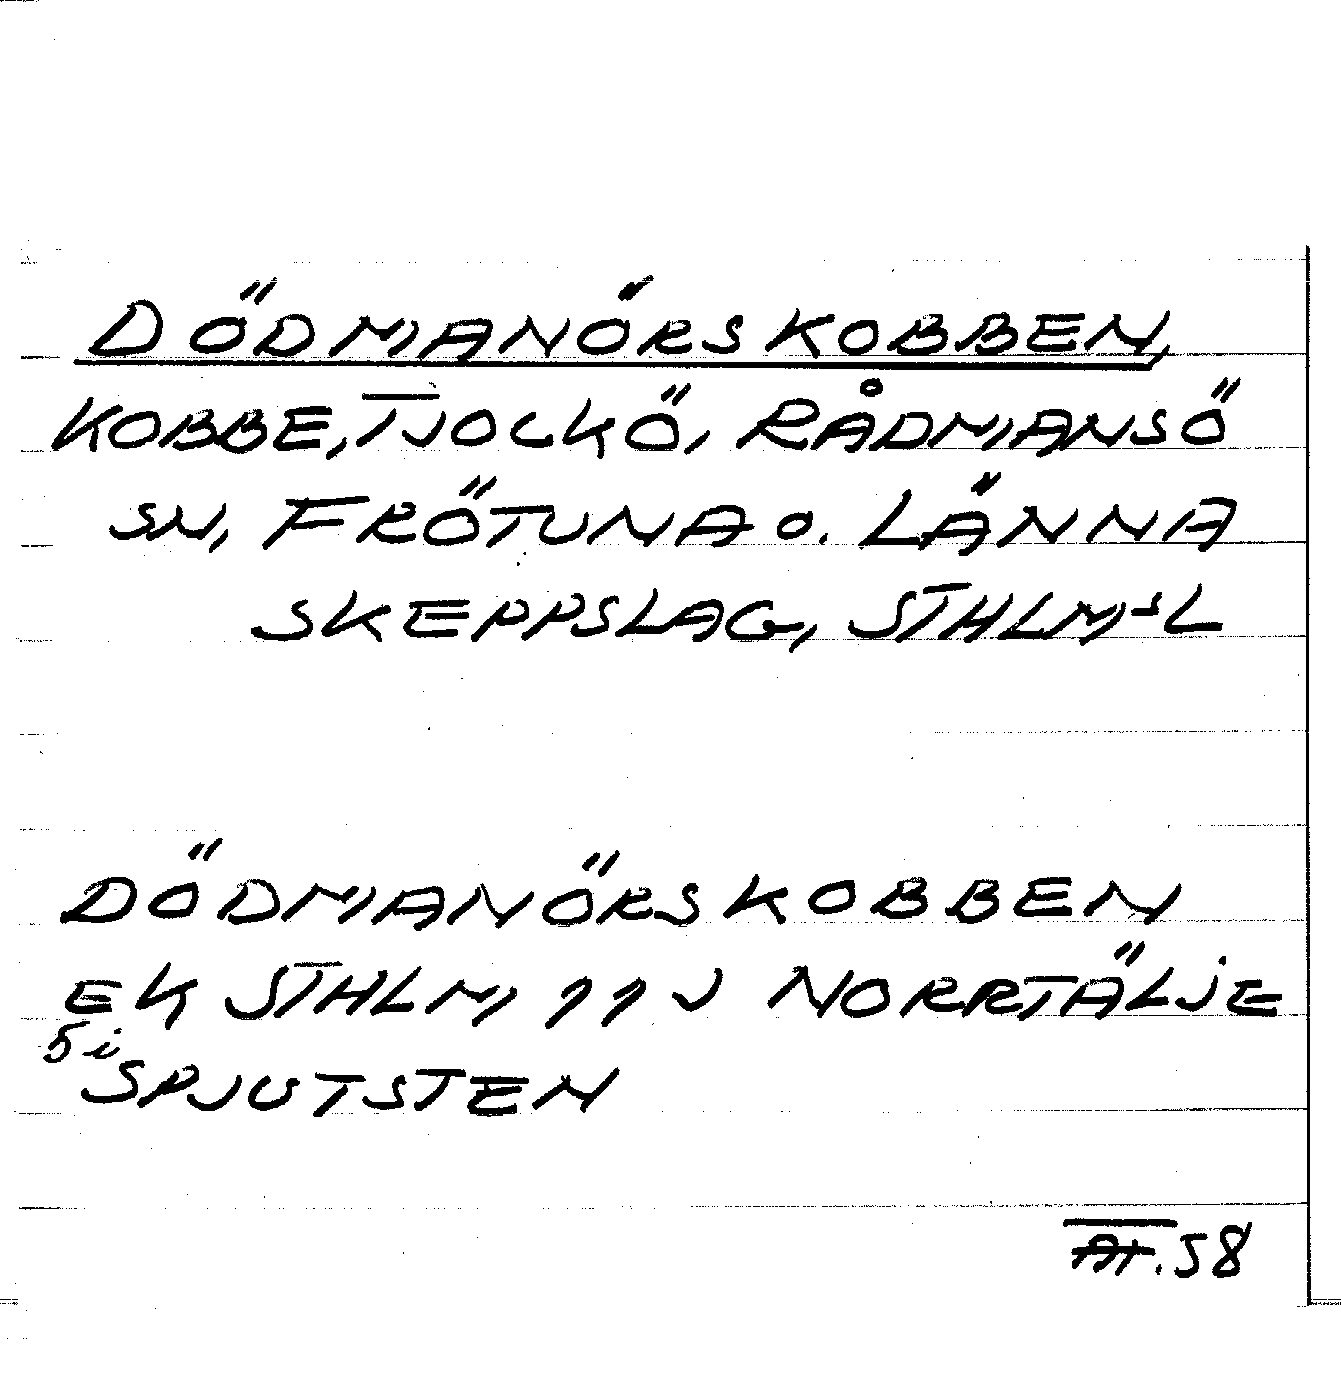 DÖDMANÖRSKOBBEN,
KOBBE, TJOCKÖ, RÅDMANSÖ
SN, FRÖTUNA O. LÄNNA
SKEPPSLAG, STHLMSL
DÖDMANÖRSKOBBEN
EK STHLM 11 J NORRTÄLJE
5 i
SPJUTSTEN
.58